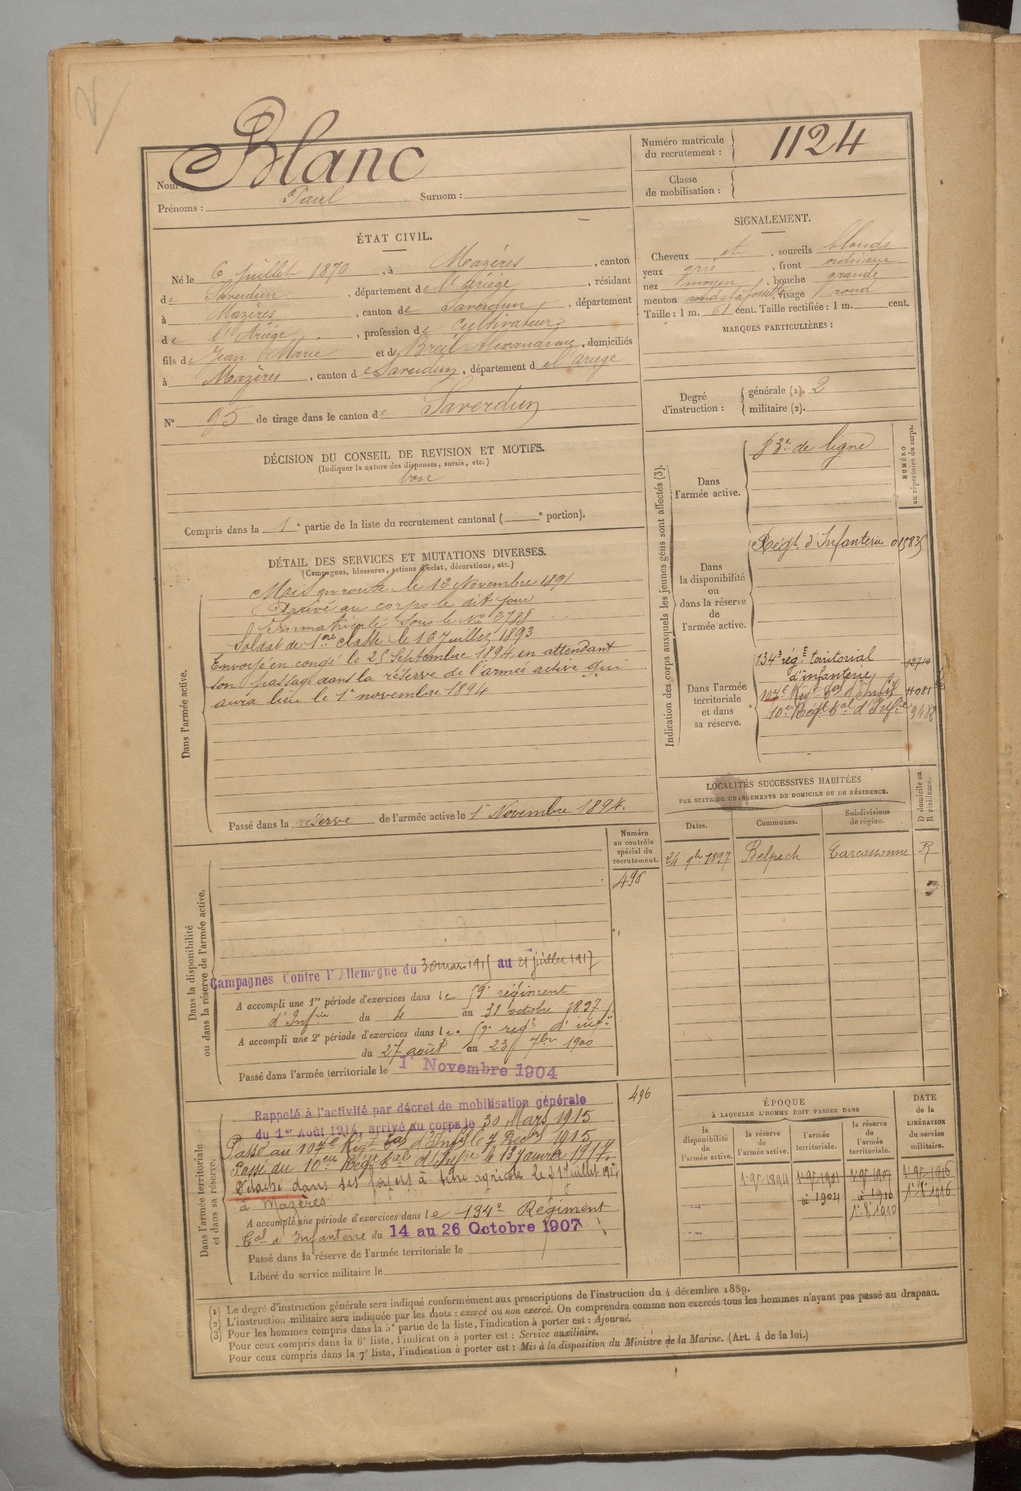 Blanc
Nom :
Prénoms : Paul Surnom :
Numéro matricule du recrutement : 1124
Classe de mobilisation :
ÉTAT CIVIL.
Né le 6 juillet 1870, à Mazères, canton
de Saverdun, département de l'Ariège, résidant
à Mazères, canton de Saverdun, département
de l'Ariège, profession de cultivateur,
fils de Jean Marie et de Breil Alexandrine, domiciliés
à Mazères, canton de Saverdun, département de l'Ariège
N° 95 de tirage dans le canton de Saverdun
SIGNALEMENT.
Cheveux et, sourcils blonds
yeux gris, front ordinaire
nez moyen, bouche grande
menton rond, visage rond
Taille : 1 m. 61 cent. Taille rectifiée : 1 m. cent.
MARQUES PARTICULIÈRES :
Degré d'instruction : générale (1). 2
militaire (2).
DÉCISION DU CONSEIL DE REVISION ET MOTIFS.
(Indiquer la nature des dispenses, sursis, etc.)
bon
Compris dans la 1e partie de la liste du recrutement cantonal ( e portion).
DÉTAIL DES SERVICES ET MUTATIONS DIVERSES.
(Campagnes, blessures, actions d'éclat, décorations, etc.)
Dans l'armée active.
Mis en route le 12 Novembre 1891
Arrivé au corps le dit jour
Immatriculé sous le N°
Soldat de 1ère classe le 16 juillet 1893
Envoyé en congé le 25 Septembre 1894 en attendant
son passage dans la réserve de l'armée active qui
aura lieu le 1er novembre 1894
Passé dans la réserve de l'armée active le 1er Novembre 1894.
Indication des corps auxquels les jeunes gens sont affectés (3).
NUMÉRO au répertoire du corps.
Dans l'armée active.
83e de ligne
Dans la disponibilité ou dans la réserve de l'armée active.
Régt d'Infanterie
Dans l'armée territoriale et dans sa réserve.
134e régt territorial
d'infanterie 12710
107e Régt tal d'Infie 11081
10e Régt tal d'Infie 9488
LOCALITÉS SUCCESSIVES HABITÉES
PAR SUITE DE CHANGEMENTS DE DOMICILE OU DE RÉSIDENCE.
Dates. Communes. Subdivisions de région. D domicile ou R résidence.
24 9bre 1897 Belpech Carcassonne R
Numéro au contrôle spécial du recrutement.
496
Dans la disponibilité ou dans la réserve de l'armée active.
Campagnes Contre l'Allemagne du 30 mars 1915 au 21 juillet 1917
A accompli une 1re période d'exercices dans le 59e régiment
d'Infie du 4 au 31 octobre 1897
A accompli une 2e période d'exercices dans le 59e régt d'infie
du 27 août au 23 7bre 1900
Passé dans l'armée territoriale le 1er Novembre 1904
Dans l'armée territoriale et dans sa réserve.
496
Rappelé à l'activité par décret de mobilisation générale
du 1er Août 1914, arrivé au corps le 30 Mars 1915
Passé au 107e Régt Tal d'Inf le 7 1915
Passé au 10eme Régt tal d'Infie le 13 Janvier 1917.
Détaché dans ses foyers à titre agricole le 21 juillet 1917
à Mazères
A accompli une période d'exercices dans le 134e Régiment
tal d'Infanterie du 14 au 26 Octobre 1907
Passé dans la réserve de l'armée territoriale le
Libéré du service militaire le
ÉPOQUE
À LAQUELLE L'HOMME DOIT PASSER DANS
la disponibilité de l'armée active. la réserve de l'armée active. l'armée territoriale. la réserve de l'armée territoriale.
DATE de la LIBÉRATION du service militaire.
(1) Le degré d'instruction générale sera indiqué conformément aux prescriptions de l'instruction du 4 décembre 1889.
(2) L'instruction militaire sera indiquée par les mots : exercé ou non exercé. On comprendra comme non exercés tous les hommes n'ayant pas passé au drapeau.
(3) Pour les hommes compris dans la 5e partie de la liste, l'indication à porter est : Ajourné.
Pour ceux compris dans la 6e liste, l'indication à porter est : Service auxiliaire.
Pour ceux compris dans la 7e liste, l'indication à porter est : Mis à la disposition du Ministre de la Marine. (Art. 4 de la loi.)